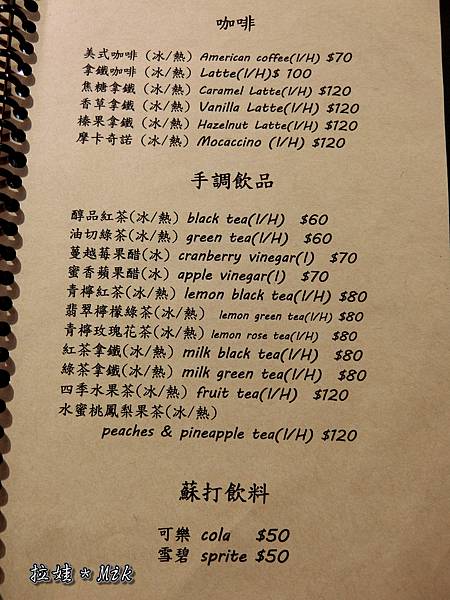 咖啡
美式咖啡 (冰/熱) American coffee(I/H) $70
拿鐵咖啡 (冰/熱) Latte(I/H)$ 100
焦糖拿鐵 (冰/熱) Caramel Latte(I/H) $120
香草拿鐵 (冰/熱) Vanilla Latte(I/H) $120
榛果拿鐵 (冰/熱) Hazelnut Latte(I/H) $120
摩卡奇諾 (冰/熱) Mocaccino (I/H) $120
手調飲品
醇品紅茶(冰/熱) black tea(I/H) $60
油切綠茶(冰/熱) green tea(I/H) $60
蔓越莓果醋(冰) cranberry vinegar(I) $70
蜜香蘋果醋(冰) apple vinegar(I) $70
青檸紅茶(冰/熱) lemon black tea(I/H) $80
翡翠檸檬綠茶(冰/熱) lemon green tea(I/H) $80
青檸玫瑰花茶(冰/熱) lemon rose tea(I/H) $80
紅茶拿鐵(冰/熱) milk black tea(I/H) $80
綠茶拿鐵(冰/熱) milk green tea(I/H) $80
四季水果茶(冰/熱) fruit tea(I/H) $120
水蜜桃鳳梨果茶(冰/熱)
peaches & pineapple tea(I/H) $120
蘇打飲料
可樂 cola $50
雪碧 sprite $50
拉娃*Mik